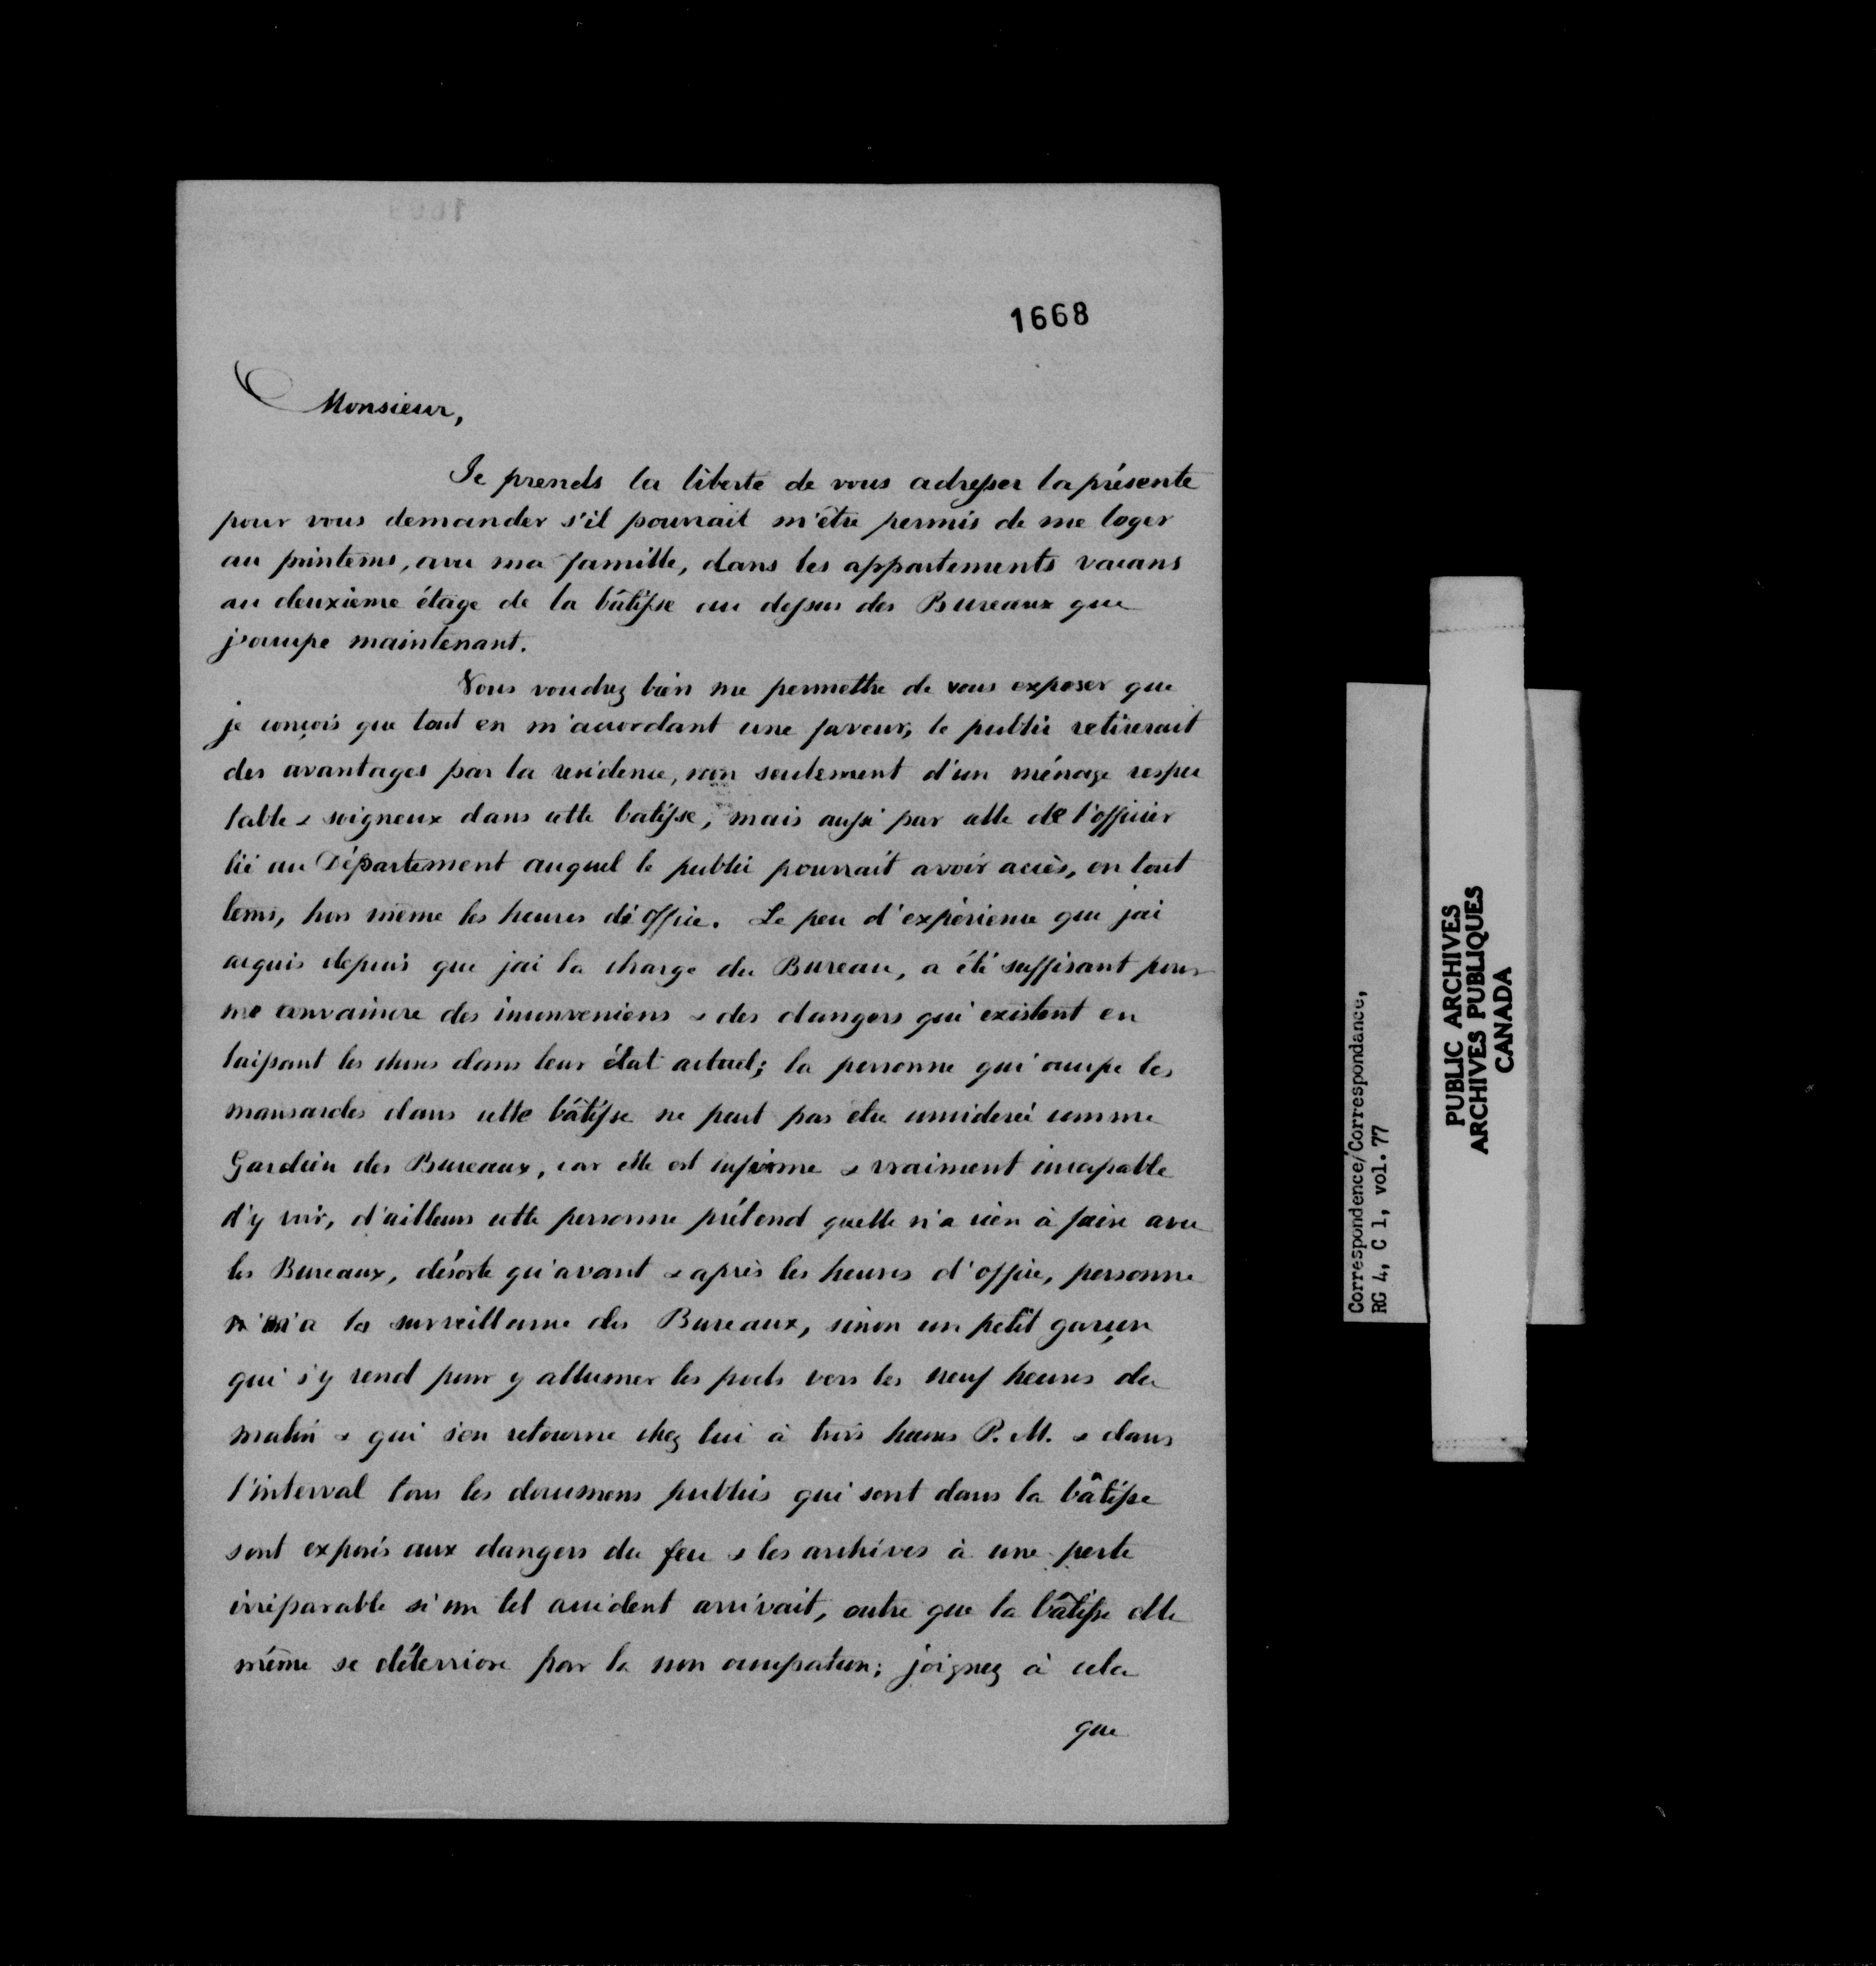 1668
Monsieur,
Je prends la liberté de vous adresser la présente
pour vous demander s'il pourrait m'être permis de me loger
au printems, avec ma famille, dans les appartements vacans
au deuxieme étage de la bâtisse au dessus des Bureaux que
j'occupe maintenant.
Vous voudrez bien me permettre de vous exposer que
je conçois que tout en m'accordant une faveur, le public retirerait
des avantages par la residence, non seulement d'un ménage respec
table & soigneux dans cette batisse, mais aussi par celle de l'officier
lié au Département auquel le public pourrait avoir accès, en tout
tems, hors même les heures d'office. Le peu d'expérience que jai
acquis depuis que jai la charge du Bureau, a été suffisant pour
me convaincre des inconveniens & des dangers qui existent en
laissant les choses dans leur état actuel; la personne qui occupe les
mansardes dans cette bâtisse ne peut pas etre considereé comme
Gardien des Bureaux, car elle est infirme & vraiment incapable
d'y voir, d'ailleurs cette personne prétend quelle n'a rien à faire avec
les Bureaux, désorte qu'avant & après les heures d'office, personne
n'a la surveillance des Bureaux, sinon un petit garçon
qui s'y rend pour y allumer les poels vers les neuf heures du
matin & qui s'en retourne chez lui à trois heures P.M. & dans
l'interval tous les documens publics qui sont dans la bâtisse
sont exposés aux dangers du feu & les archives à une perte
irréparable si un tel accident arrivait, outre que la bâtisse elle
même se déteriore par la non occupation; joignez à cela
que
Correspondence/Correspondance,
RG 4, C 1, vol. 77
PUBLIC ARCHIVES
ARCHIVES PUBLIQUES
CANADA